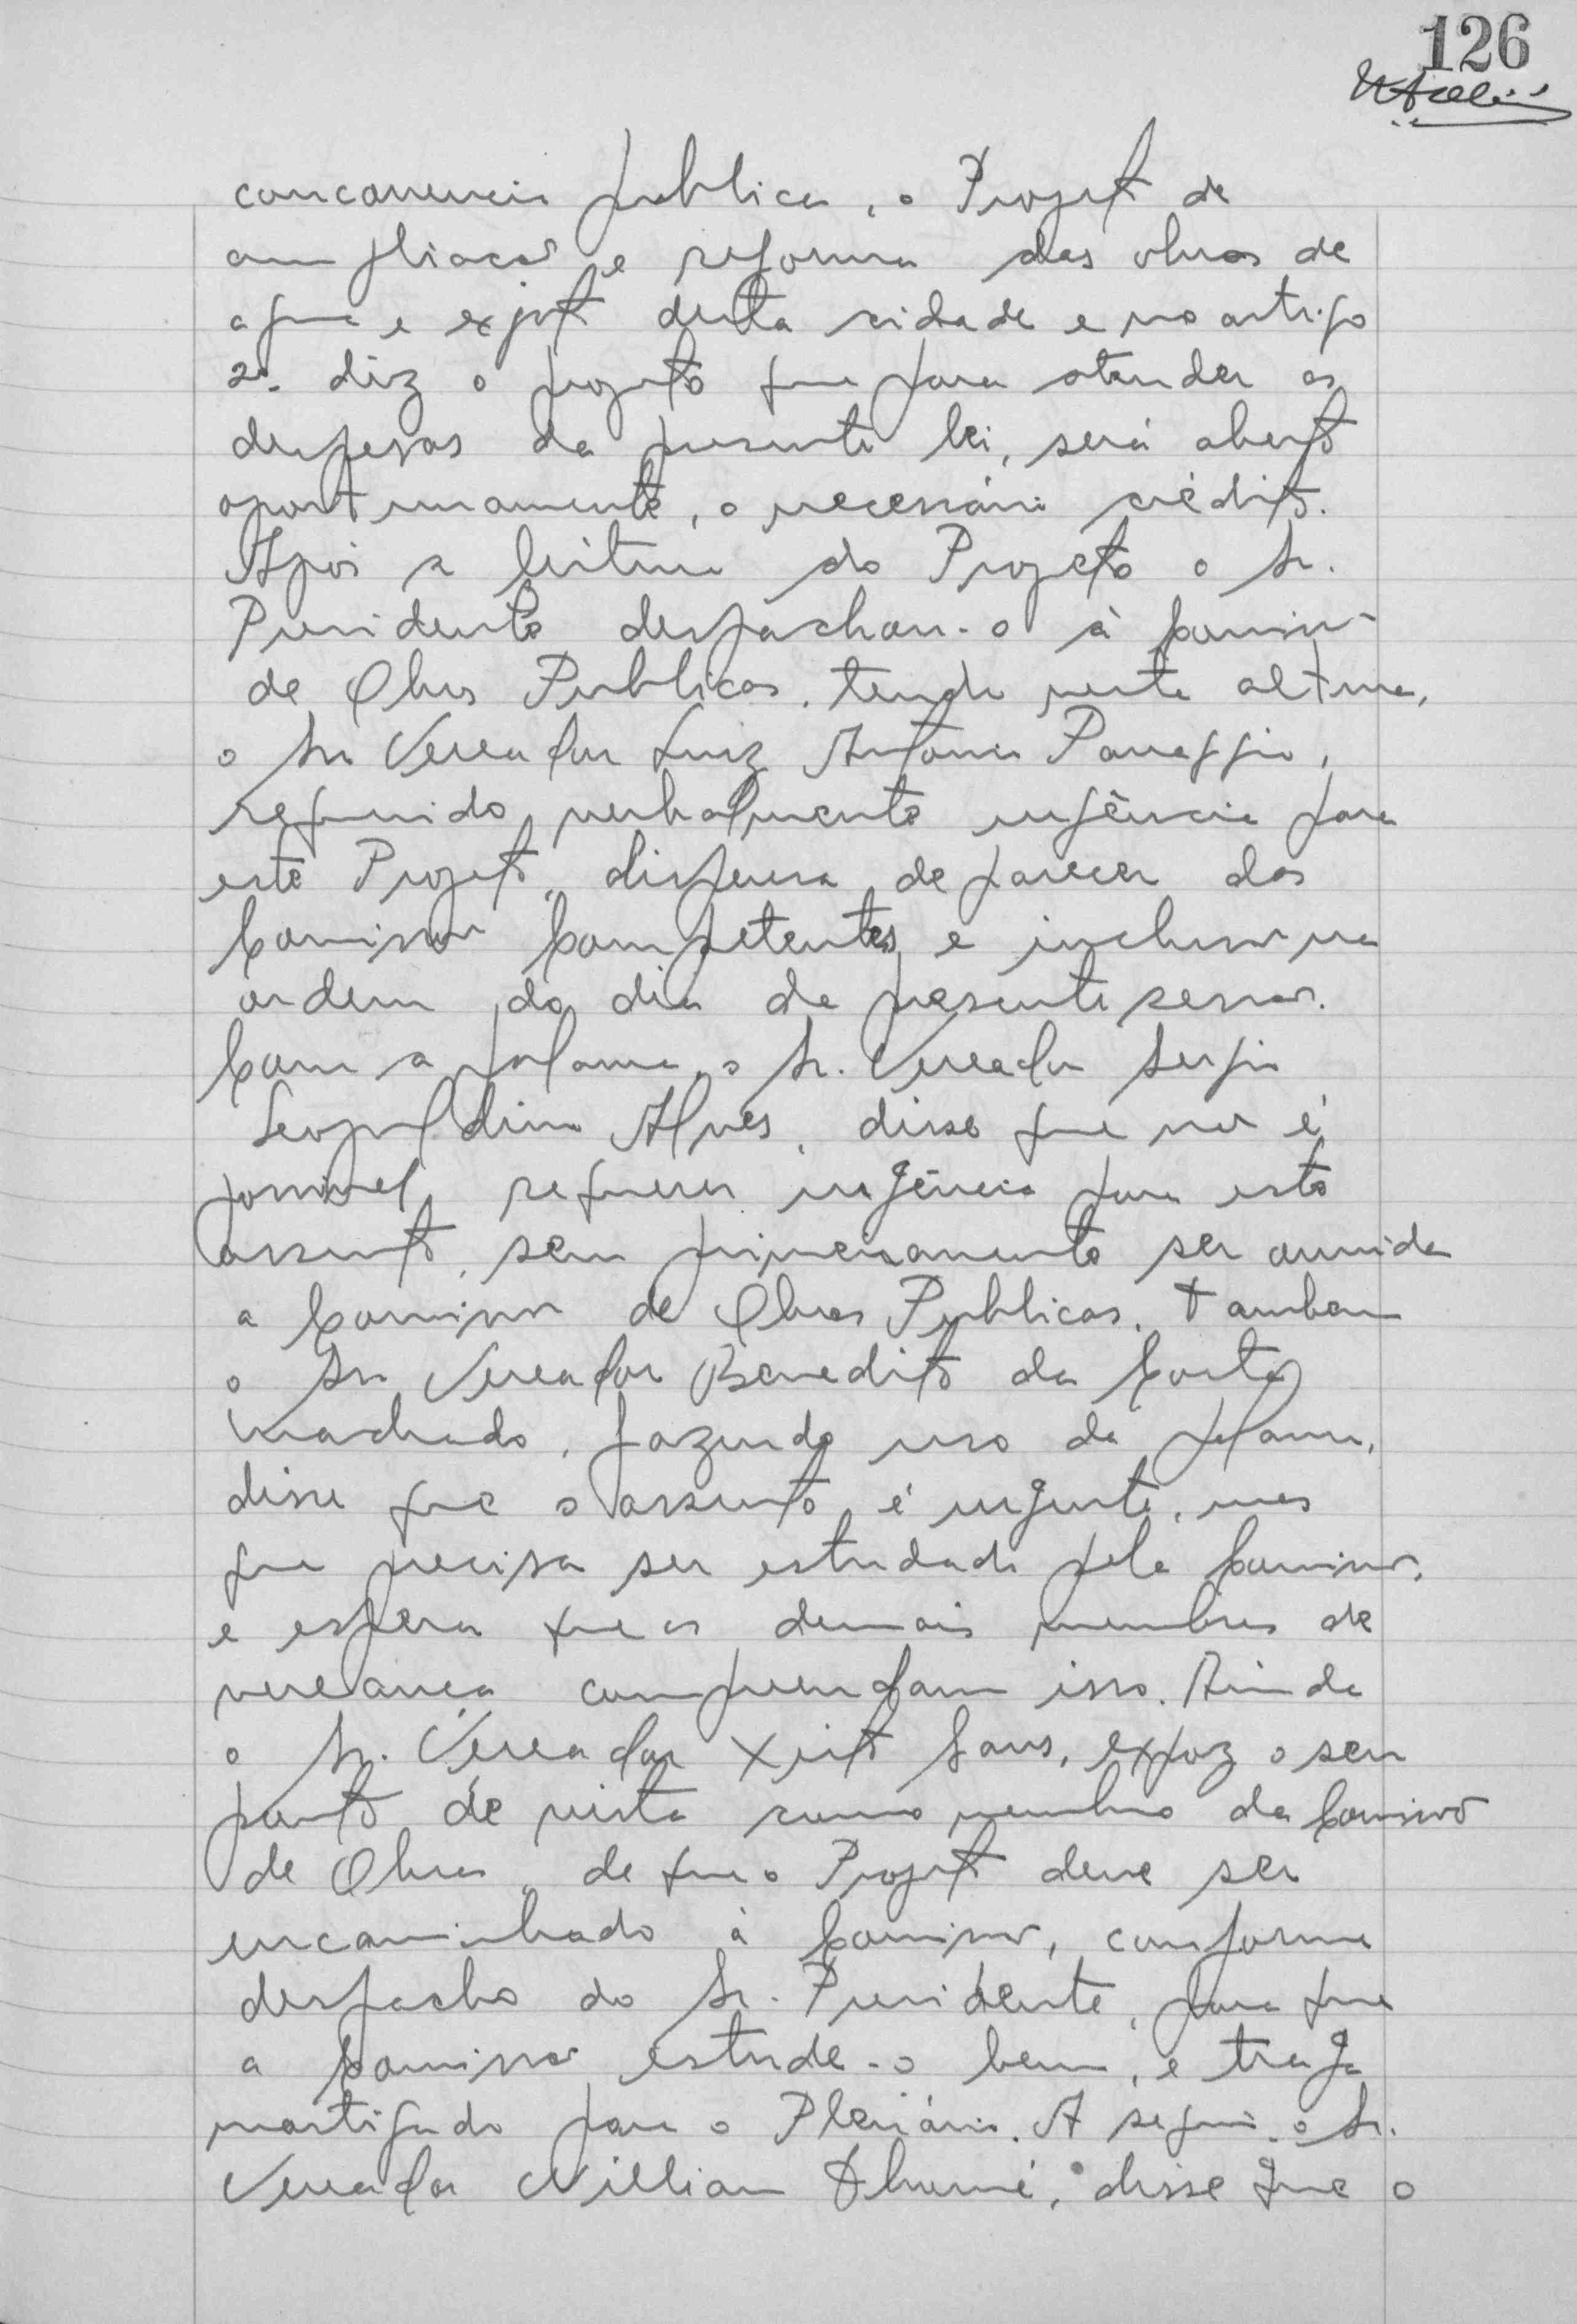 126
concorrencia publica, o Projeto de
ampliacao e reforma das obras de
agua e exgoto desta cidade e no artigo
2º. diz o projeto que para atender as
despesas da presente lei, será aberto
oportunamente, o necessário crédito.
Após a leitura do Projeto o Sr.
Presidente despachou-o à Comissão
de Obras Publicas, tendo nesta altura,
o Snr Vereador Luiz Antonio Panaggio,
requerido verbalmente urgência para
este Projeto, dispensa de parecer das
Comissão Competentes, e inclusao na
ordem do dia da presente sessao.
Com a palavra, o Sr. Vereador Sergio
Leopoldino Alves, disse que nao é
possivel requerer urgência para este
assunto, sem primeiramente ser ouvida
a Comissao de Obras Publicas. Tambem
o Snr Vereador Benedito da Costa
Machado, fazendo uso da palavra,
disse que o assunto é urgente, mas
que precisa ser estudado pela Comissao,
e espera que os demais membros da
vereança compreendam isso. Ainda
o Sr. Vereador Xisto, expoz o seu
ponto de vista como membro da Comissão
de Obras, de que o Projeto deve ser
encaminhado à Comissao, conforme
despacho do Sr. Presidente, para que
a Comissao estude-o bem, e traga
mastigado para o Plenário. A seguir, o Sr.
Vereador Willian, disse que o